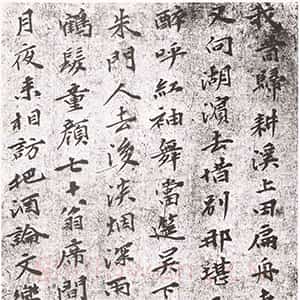 我昔歸耕溪上田扁舟
又向湖濱去惜別那堪
醉呼紅袖舞當筵吳下
朱門人去後淡烟深雨
鶴髮童顏七十翁席間
月夜來相訪把酒論文